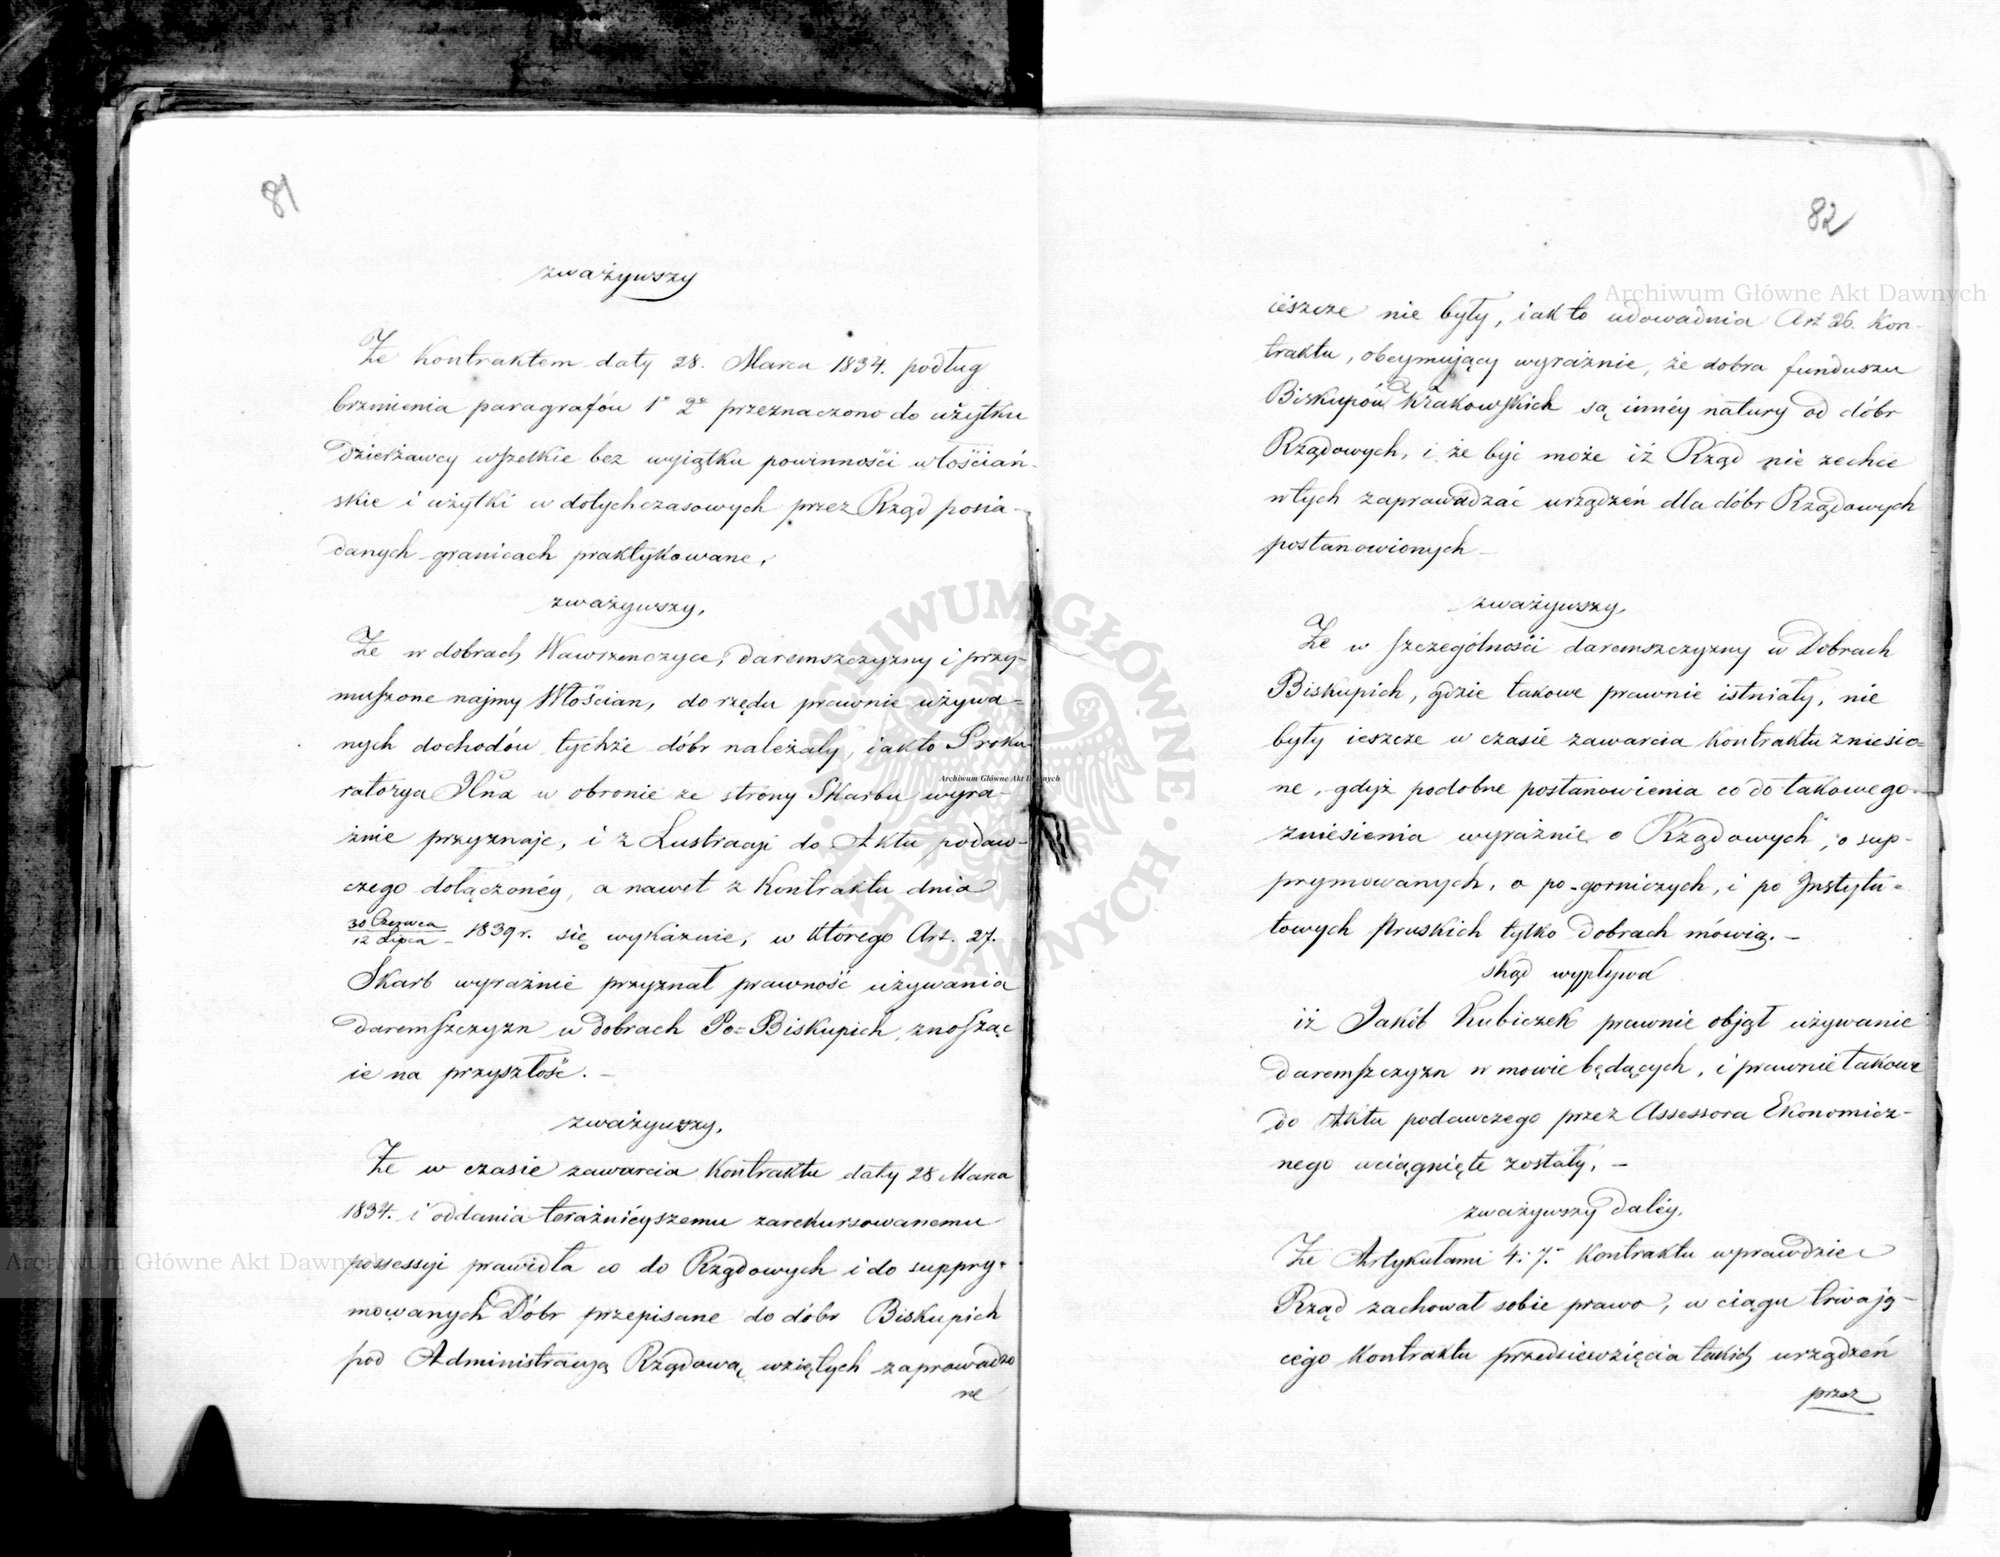 81
zważywszy
Że kontraktem daty 28. Marca 1834. podług
brzmienia paragrafów 1° 2° przeznaczono do użytku
dzierżawcy wszelkie bez wyiątku powinności włościań-
skie i użytki w dotychczasowych przez Rząd posia-
danych granicach praktykowane,
zważywszy,
Że w dobrach Wawrzenczyce, daremszczyzny i przy-
muszone najmy Włościan, do rzędu prawnie używa-
nych dochodów tychże dóbr należały, iak to Proku-
ratorya w obronie ze strony Skarbu wyra-
źnie przyznaje, i z Lustracyi do Aktu podaw-
czego dołączonéy, a nawet z Kontraktu dnia
30 Czerwca
12 Lipca 1839 r. się wykaźuie, w którego Art. 27.
Skarb wyraźnie przyznał prawność używania
daremszczyzn w dobrach Po=Biskupich, znosząc
ie na przyszłość. –
zważywszy,
Że w czasie zawarcia Kontraktu daty 28 Marca
1834. i oddania teraźnieyszemu zarekursowanemu
possessyi prawidła co do Rządowych i do suppry-
mowanych Dóbr przepisane do dóbr Biskupich
pod Administracyą Rządową wziętych zaprowadzo
ne
82
ieszcze nie były, iak to udowadnia Art 26. Kon-
traktu, obeymujący wyraźnie, że dobra funduszu
Biskupów Krakowskich są innéy natury od dóbr
Rządowych, i że być może iż Rząd nie zechce
w tych zaprowadzać urządzeń dla dóbr Rządowych
postanowionych –
zważywszy,
Że w szczególności daremszczyzny w Dobrach
Biskupich, gdzie takowe prawnie istniały, nie
były ieszcze w czasie zawarcia Kontraktu zniesio=
ne, gdyż podobne postanowienia co do takowego
zniesienia wyraźnie o Rządowych, o sup-
prymowanych, o po-gorniczych, i po Instytu=
towych Pruskich tylko dobrach mówią. –
skąd wypływa
iż Jakób Kubiczek prawnie objął używanie
daremszczyzn w mowie będących, i prawnie takowe
do Aktu podawczego przez Assessora Ekonomicz-
nego wciągnięte zostały. –
zważywszy daléy,
Że Artykułami 4. 7. Kontraktu wprawdzie
Rząd zachował sobie prawo, w ciągu trwają-
cego Kontraktu przedsiewzięcia takich urządzeń
przez
Archiwum Główne Akt Dawnych
Archiwum Główne Akt Dawnych
Archiwum Główne Akt Dawnych
ARCHIWUM GŁÓWNE · AKT DAWNYCH ·